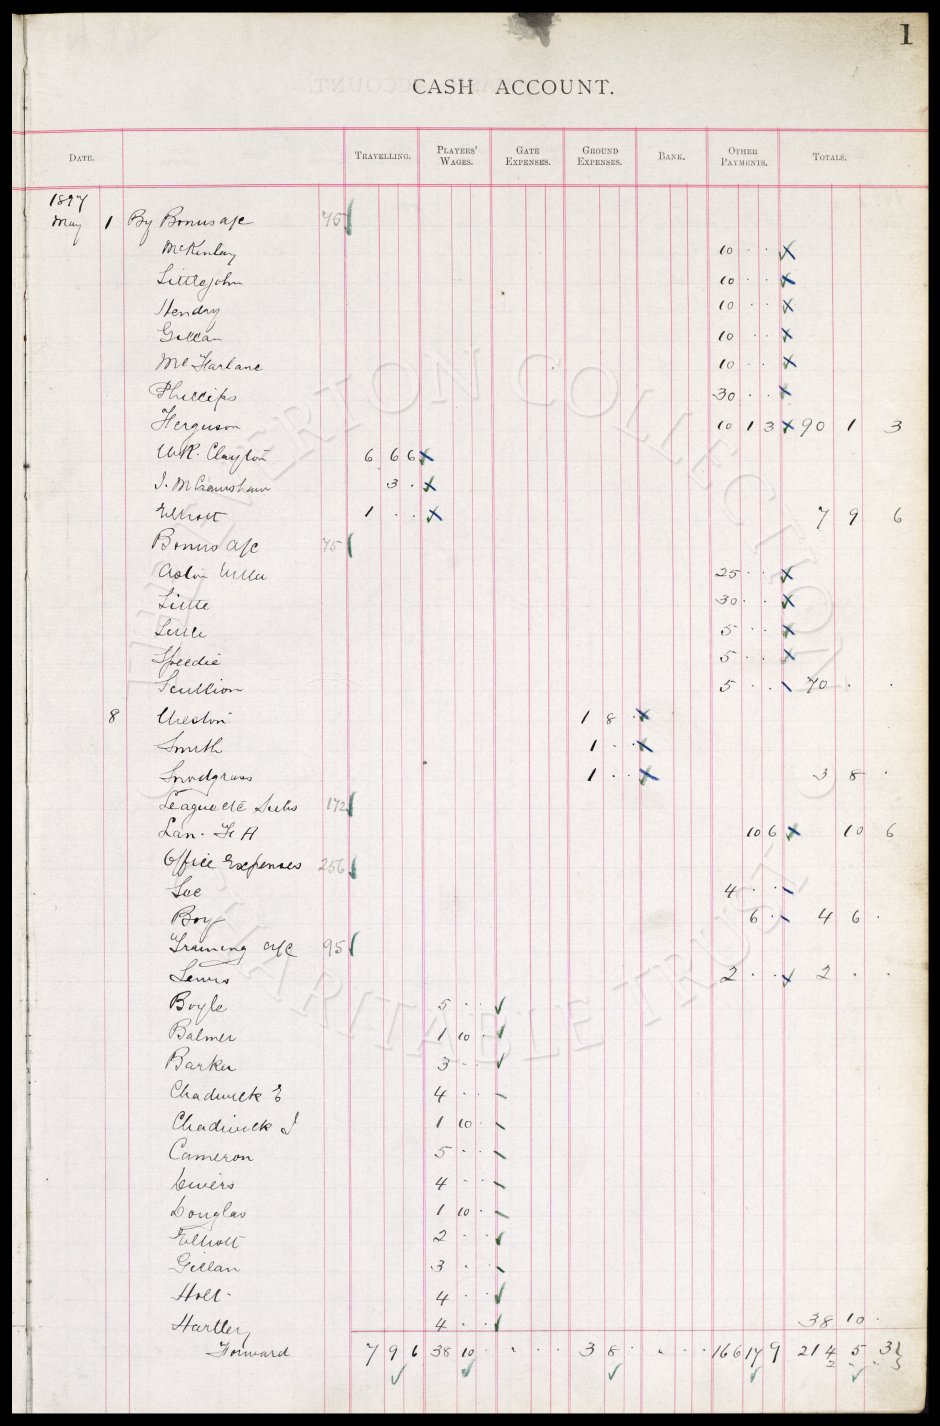 1
CASH ACCOUNT.
DATE. TRAVELLING. PLAYERS' WAGES. GATE EXPENSES. GROUND EXPENSES. BANK. OTHER PAYMENTS. TOTALS.
1897
May 1 By Bonus a/c 75
McKinlay 10 . .
Littlejohn 10 . .
Hendry 10 . .
Gillan 10 . .
McFarlane 10 . .
Phillips 30 . .
Ferguson 10 1 3 90 1 3
W.R. Clayton 6 6 6
3 .
Elliott 1 . . 7 9 6
Bonus a/c 75
Aston Villa 25 . .
Little 30 . .
5 . .
Speedie 5 . .
Scullion 5 . . 70 . .
8 1 8 .
Smith 1 . .
Snodgrass 1 . . 3 8 .
League &c Subs 172
Lan. F A 10 6 10 6
Office Expenses 256
Sec 4 . .
Boy 6 . 4 6 .
Training a/c 95
Lewis 2 . . 2 . .
Boyle 5 . .
Balmer 1 10 .
Barker 3 . .
Chadwick E 4 . .
Chadwick J 1 10 .
Cameron 5 . .
4 . .
Douglas 1 10 .
Elliott 2 . .
Gillan 3 . .
Holt 4 . .
Hartley 4 . . 38 10 .
Forward 7 9 6 38 10 . . . . 3 8 . . . . 166 17 9 214 5 3
2 . .
THE EVERTON COLLECTION CHARITABLE TRUST